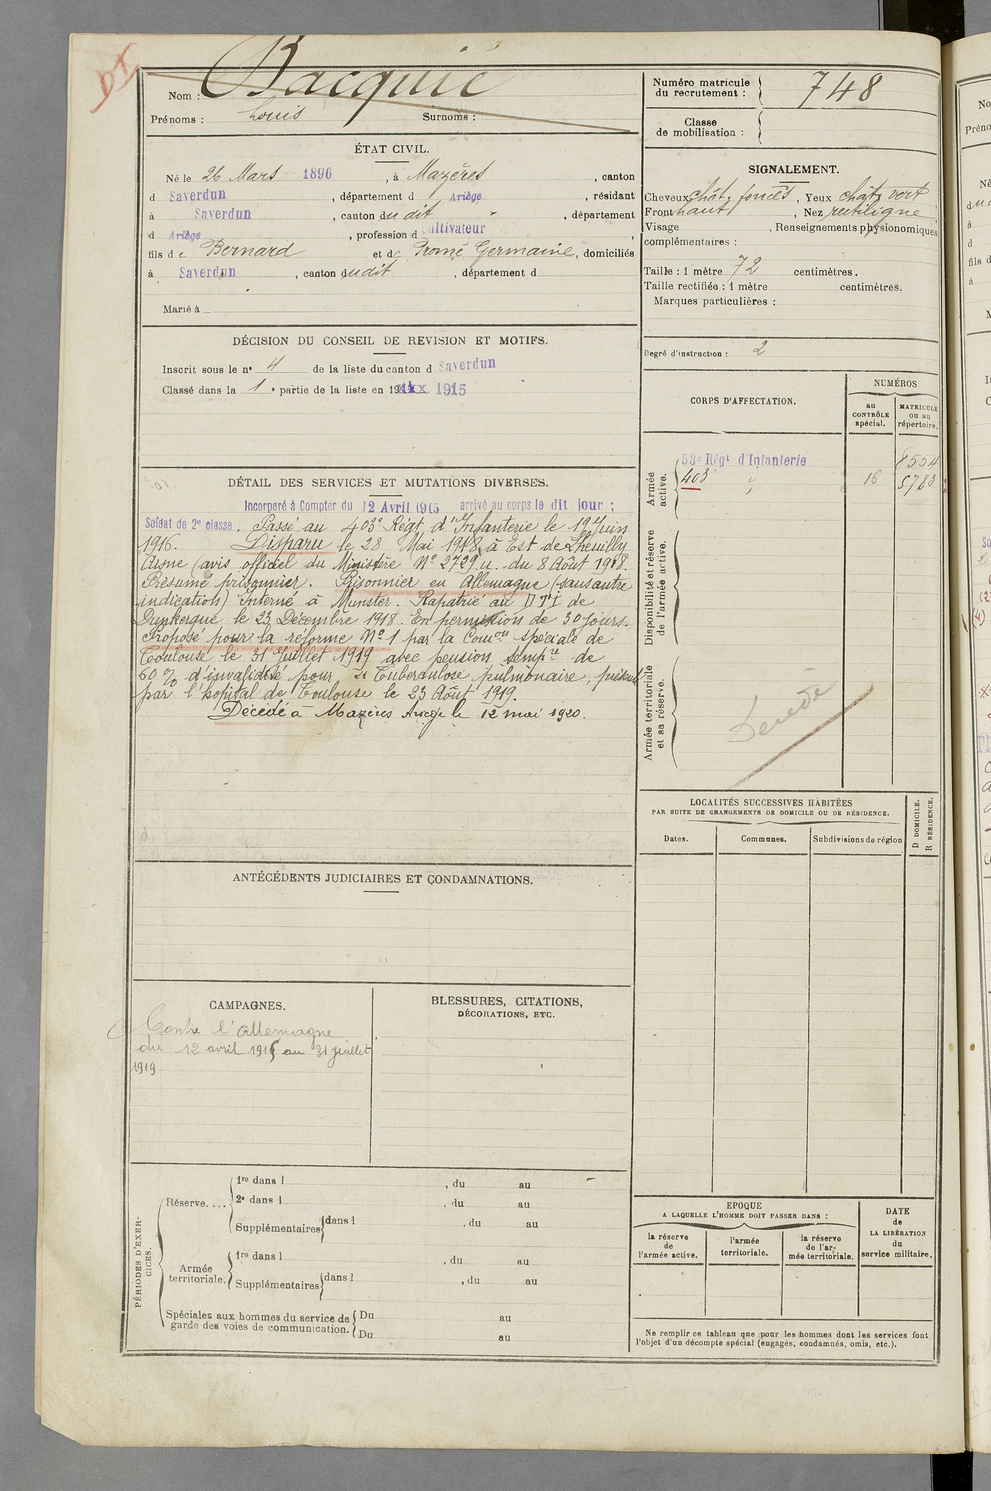 Nom : Bacquié
Prénoms : Louis Surnoms :
Numéro matricule du recrutement : 748
Classe de mobilisation :
ÉTAT CIVIL.
Né le 26 Mars 1896, à Mazères, canton
d Saverdun, département d Ariège, résidant
à Saverdun, canton dudit, département
d Ariège, profession d Cultivateur
fils de Bernard et de Promé Germaine, domiciliés
à Saverdun, canton dudit, département d
Marié à
SIGNALEMENT.
Cheveux chât. foncés, Yeux chât. vert
Front haut, Nez rectiligne
Visage , Renseignements physionomiques
complémentaires :
Taille : 1 mètre 72 centimètres.
Taille rectifiée : 1 mètre centimètres.
Marques particulières :
Degré d'instruction : 2
DÉCISION DU CONSEIL DE REVISION ET MOTIFS.
Inscrit sous le n° 4 de la liste du canton d Saverdun
Classé dans la 1e partie de la liste en 1915
DÉTAIL DES SERVICES ET MUTATIONS DIVERSES.
Incorporé à Compter du 12 Avril 1915 arrivé au corps le dit jour ;
Soldat de 2e classe. Passé au 403e Régt d'Infanterie le 19 Juin
1916. Disparu le 28 Mai 1918 à Est de Lheuilly
Aisne (avis officiel du Ministère N° 2729.u. du 8 Août 1918.
Présumé prisonnier. Prisonnier en Allemagne (sans autre
indication) Interné à Munster. Rapatrié au DTI de
Dunkerque le 23 Décembre 1918. En permission de 30 jours.
Proposé pour la réforme N° 1 par la Con spéciale de
Toulouse le 31 Juillet 1919 avec pension temp.re de
60 % d'invalidité pour Tuberculose pulmonaire,
par l'hôpital de Toulouse le 23 Août 1919.
Décédé à Mazères Ariège le 12 mai 1920.
CORPS D'AFFECTATION.
NUMÉROS
au CONTRÔLE spécial.
MATRICULE ou au répertoire.
Armée active.
53e Régt d'Infanterie 8554
403 " 16 5783
Disponibilité et réserve de l'armée active.
Armée territoriale et sa réserve.
Décédé
LOCALITÉS SUCCESSIVES HABITÉES
PAR SUITE DE CHANGEMENTS DE DOMICILE OU DE RÉSIDENCE.
Dates. Communes. Subdivisions de région
D DOMICILE.
R RÉSIDENCE.
ANTÉCÉDENTS JUDICIAIRES ET CONDAMNATIONS.
CAMPAGNES.
Contre l'Allemagne
du 12 avril 1915 au 31 juillet
1919
BLESSURES, CITATIONS,
DÉCORATIONS, ETC.
PÉRIODES D'EXERCICES.
Réserve....
1re dans l , du au
2e dans l , du au
Supplémentaires dans l , du au
Armée territoriale.
1re dans l , du au
Supplémentaires dans l , du au
Spéciales aux hommes du service de garde des voies de communication.
Du au
Du au
EPOQUE
A LAQUELLE L'HOMME DOIT PASSER DANS :
la réserve de l'armée active.
l'armée territoriale.
la réserve de l'armée territoriale.
DATE de LA LIBÉRATION du service militaire.
Ne remplir ce tableau que pour les hommes dont les services font
l'objet d'un décompte spécial (engagés, condamnés, omis, etc.).